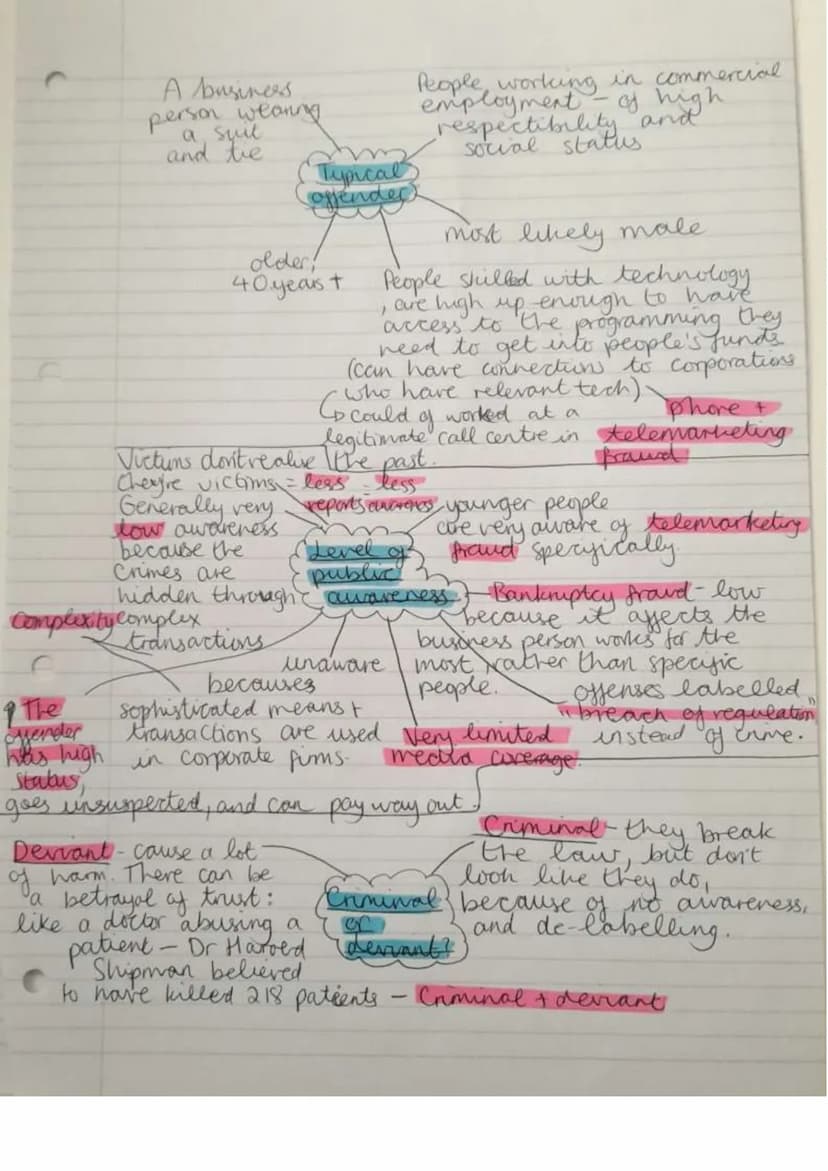 A business
person wearing
a suit
and tie
People working in commercial
employment - of high
respectibility and
social status
Typical
offender
most likely male
older,
40years +
People skilled with technology
, are high up enough to have
access to the programming they
need to get into people's funds
(can have connections to corporations
who have relevant tech)
↳ could of worked at a
legitimate call centre in
the past.
phone +
telemarketing
fraud
Victims don't realise
they're victims = less = less
reports awareness
Generally very
low awareness
because the
crimes are
hidden through
complex
transactions
Complexity
younger people
are very aware of telemarketing
fraud specifically.
Level of
public
awareness
Bankruptcy fraud - low
because it affects the
business person works for the
most rather than specific
people.
unaware
becauses
sophisticated means +
transactions are used
in corporate firms.
offenses labelled
"breach of regulation"
instead of crime.
Very limited
media coverage
The
offender
has high
status,
goes unsuspected, and can pay way out.
Criminal - they break
the law, but don't
look like they do,
because of no awareness,
and de-labelling.
Deviant - cause a lot
of harm. There can be
a betrayal of trust:
like a doctor abusing a
patient - Dr Harold
Shipman believed
to have killed 218 patients - Criminal + deviant
Criminal
or
deviant?